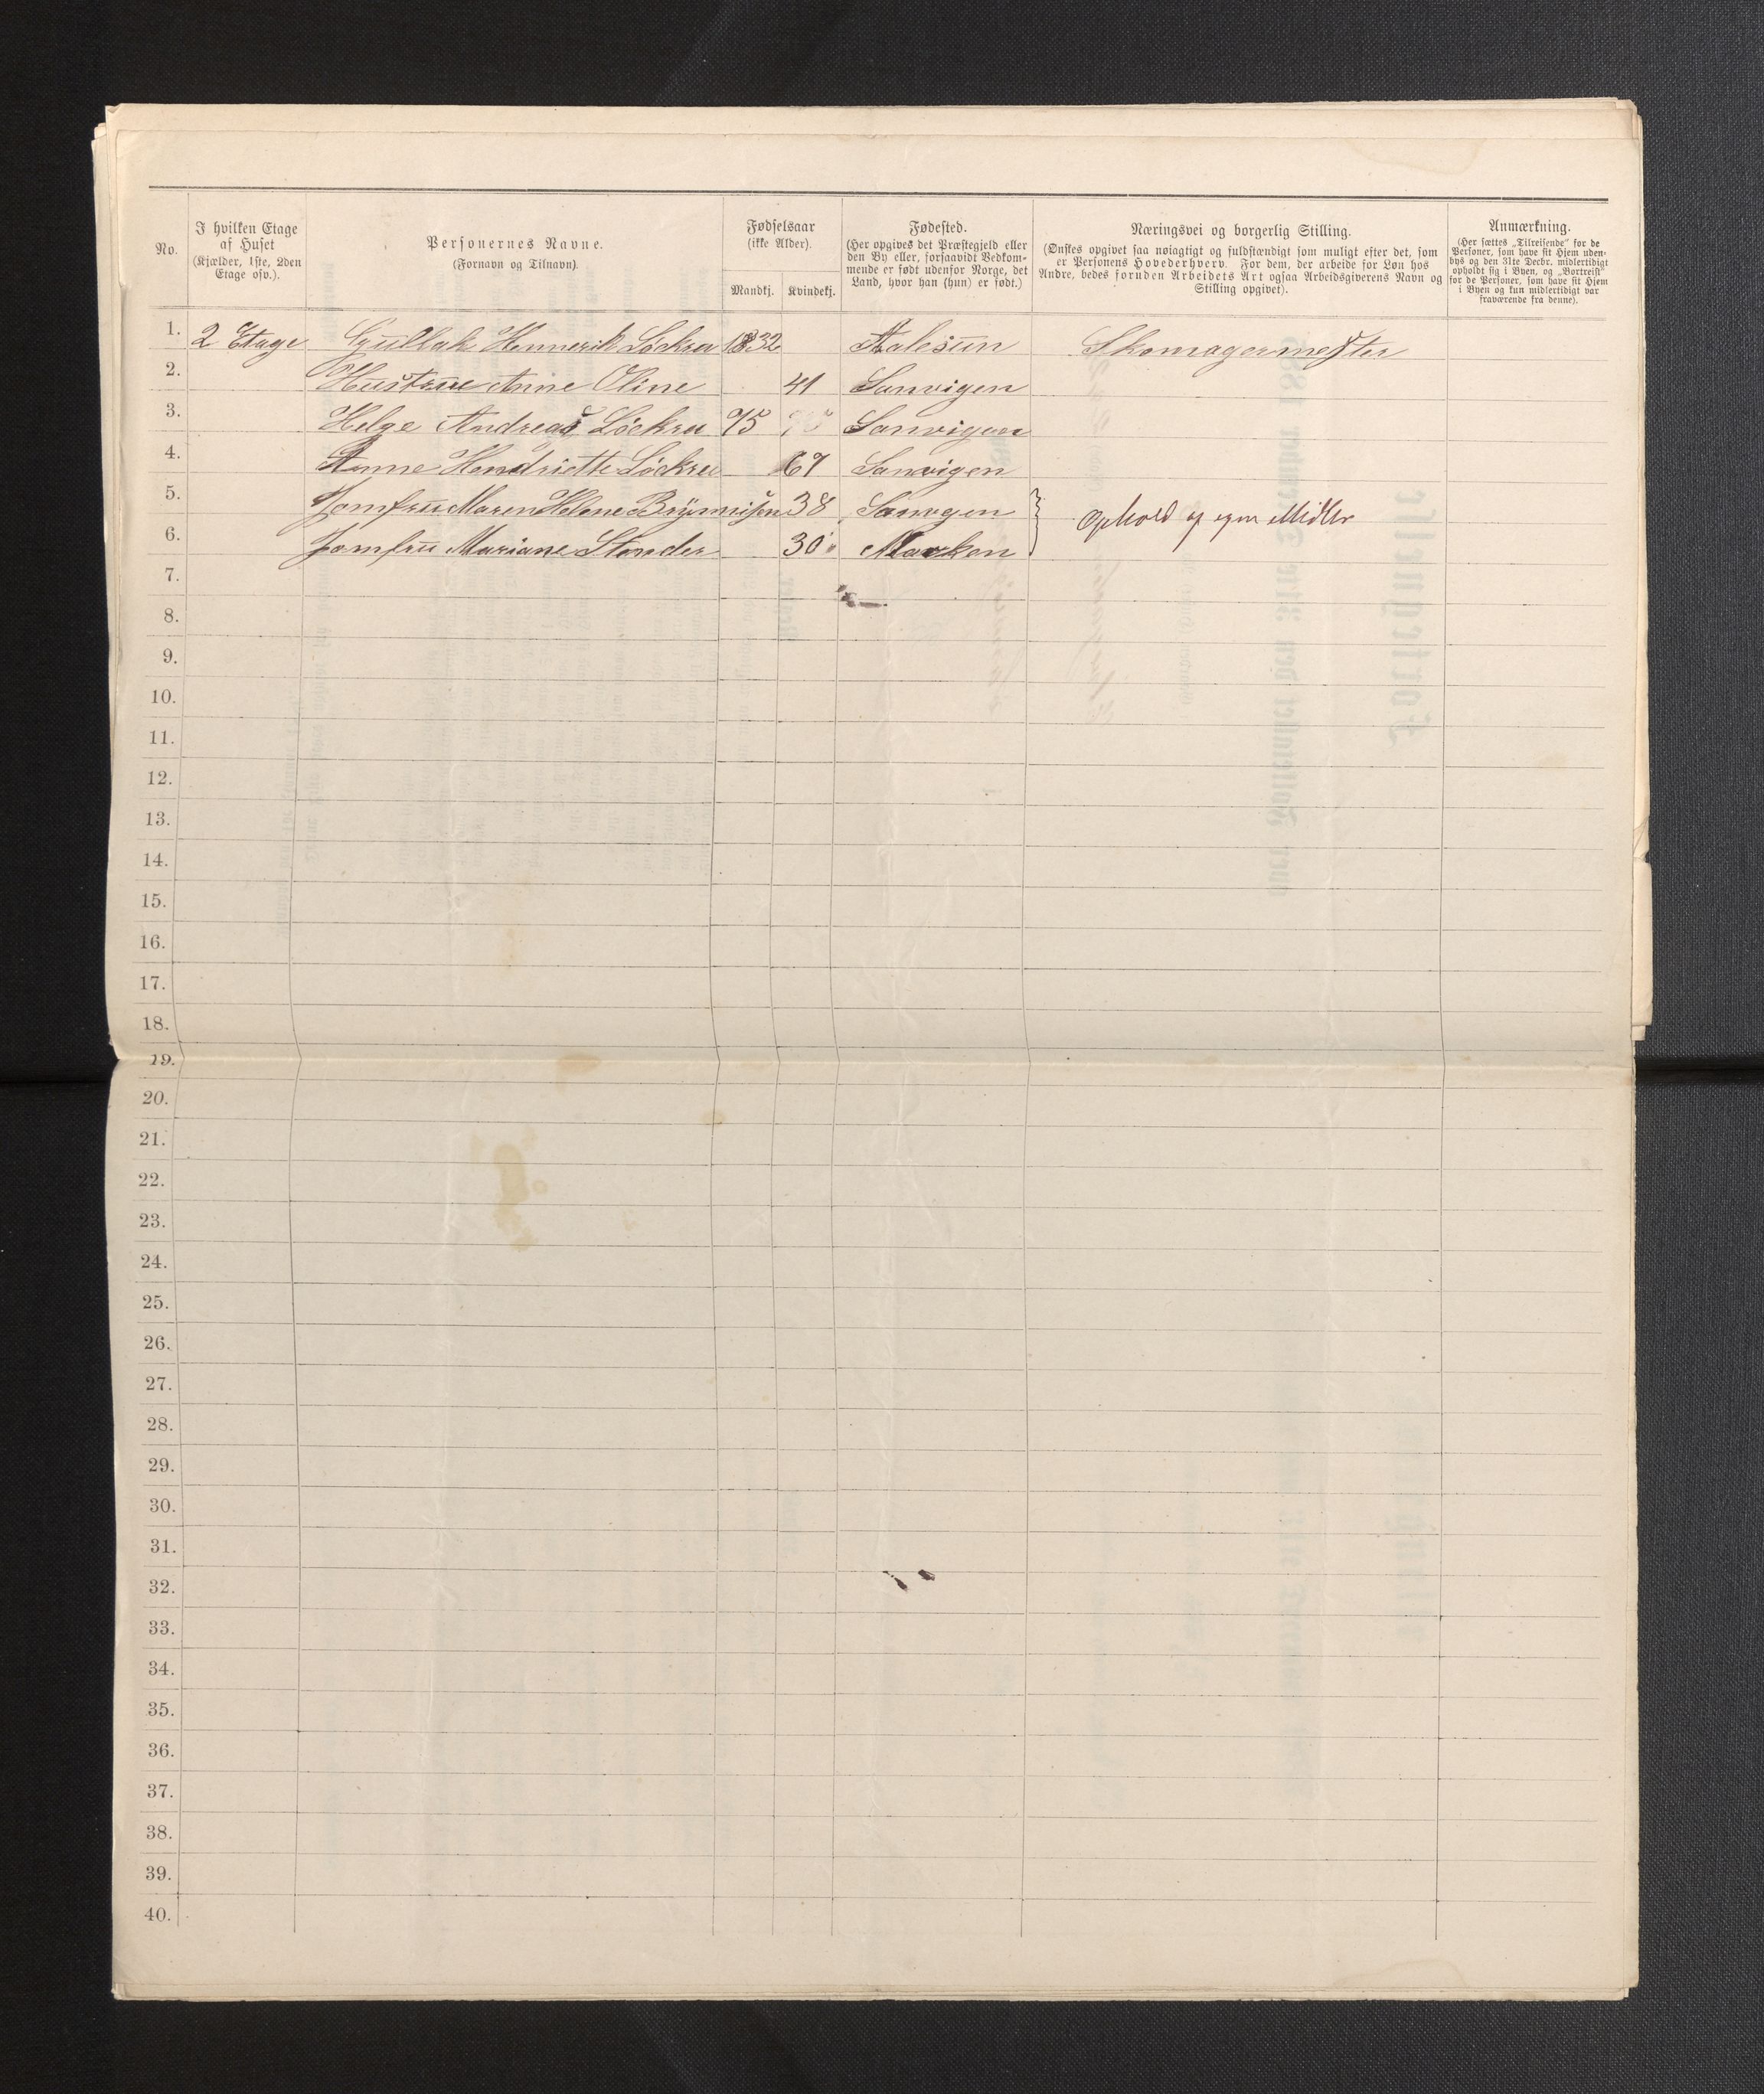 No.
I hvilken Etage
af Huset
(Kjælder, 1ste, 2den
Etage osv.).
Personernes Navne.
(Fornavn og Tilnavn).
Fødselsaar
(ikke Alder).
Mandkj. Kvindekj.
Fødested.
(Her opgives det Præstegjeld eller
den By eller, forsaavidt Vedkom-
mende er født udenfor Norge, det
Land, hvor han (hun) er født.)
Næringsvei og borgerlig Stilling.
(Ønskes opgivet saa nøiagtigt og fuldstændigt som muligt efter det, som
er Personens Hovederhverv. For dem, der arbeide for Løn hos
Andre, bedes foruden Arbeidets Art ogsaa Arbeidsgiverens Navn og
Stilling opgivet).
Anmærkning.
(Her sættes „Tilreisende" for de
Personer, som have sit Hjem uden-
bys og den 31te Decbr. midlertidigt
opholdt sig i Byen, og „Bortreist"
for de Personer, som have sit Hjem
i Byen og kun midlertidigt var
fraværende fra denne).
1. 2 Etage Gullak Hennerik Löckru 1832 Aalesun Skomagermester
2. Hustrue Anne Oline 41 Sanvigen
3. Helge Andreas Löckru 75 Sanvigen
4. Anne Hendriette Löckru 67 Sanvigen
5. Jomfru Maren Helene 38 Sanvgen
Ophold af egne Midler
6. Jomfru Mariane Slonder 30 Marken
7.
8.
9.
10.
11.
12.
13.
14.
15.
16.
17.
18.
19.
20.
21.
22.
23.
24.
25.
26.
27.
28.
29.
30.
31.
32.
33.
34.
35.
36.
37.
38.
39.
40.